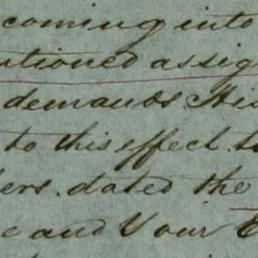 coming into
utioned assig
demands His
to this effect t
ers. dated the
e and Your E